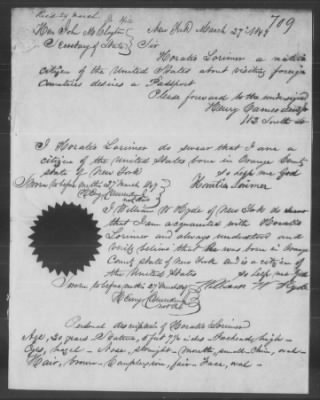 Recd 29 March
709
Hon John M Clayton New York March 27th 1849
Secretary of State Sir
Horatio Lorimer a native
citizen of the United States about visiting foreign
Countries desires a Passport
Please forward to the undersigned
Henry
112 South st
I Horatio Lorimer do swear that I am a
citizen of the United States born in Orange County
State of New York so help me God
Sworn to before me this 27 March 1849 Horatio Lorimer
I William W Hyde of New York do swear
that I am acquainted with Horatio
Lorimer and always understood and
verily believe that he was born in Orange
County State of New York and is a citizen of
the United States so help me God
Sworn to before me this 27 March 49 William W Hyde
Personal description of Horatio Lorimer
Age, 20 years - Stature, 5 feet 7½ inches - Forehead, high -
Eyes, hazel - Nose, straight - Mouth, small - Chin, oval -
Hair, brown - Complexion, fair - Face, oval -